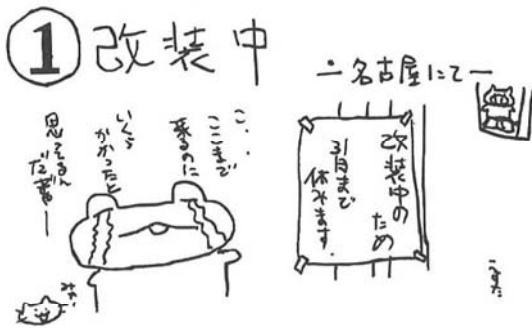 ① 改装中
ー名古屋にてー
改装中のため
31月まで
休みます。
こ、、
ここまで
来るのに
いくら
かかったと
思ってるん